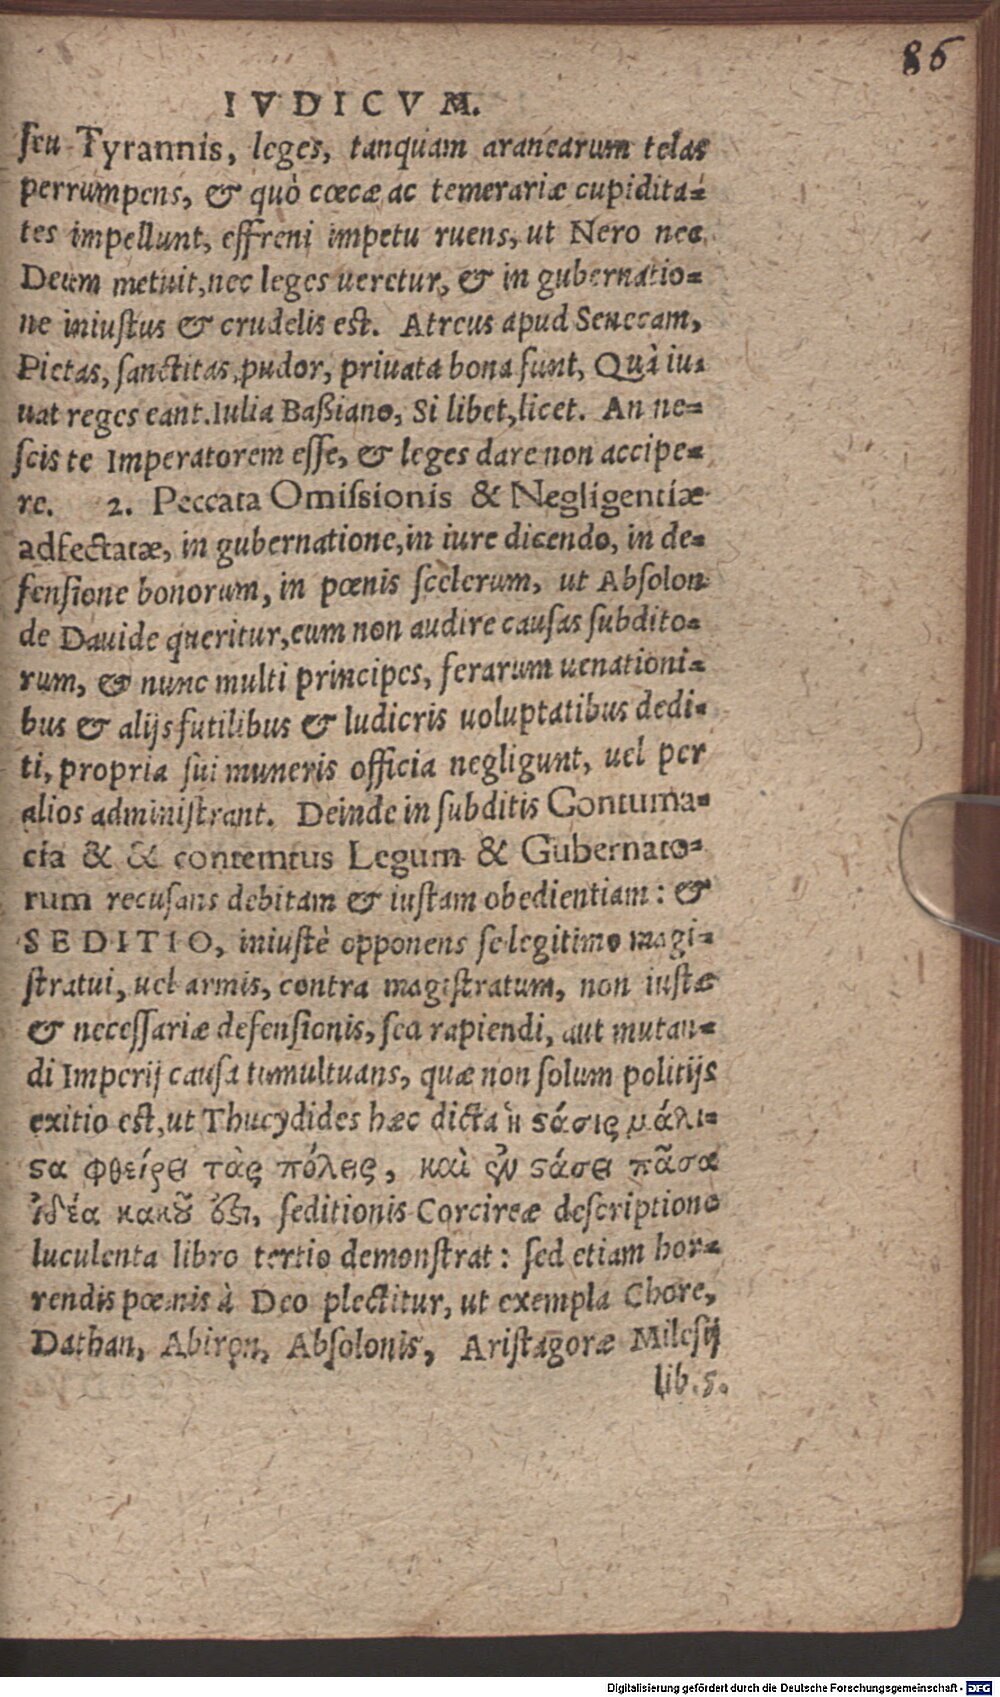 86
IVDICVM.
ſeu Tyrannis, leges, tanquam aranearum telas
perrumpens, & quò cœcæ ac temerariæ cupidita-
tes impellunt, effreni impetu ruens, ut Nero nec
Deum metuit, nec leges ueretur, & in gubernatio-
ne iniuſtus & crudelis est. Atreus apud Senecam,
Pietas, ſanctitas, pudor, priuata bona ſunt, Quà iu-
uat reges eant. Iulia Baßiano, Si libet, licet. An ne-
ſcis te Imperatorem eſſe, & leges dare non accipe-
re. 2. Peccata Omiſsionis & Negligentiæ
adfectatæ, in gubernatione, in iure dicendo, in de-
fenſione bonorum, in pœnis ſcelerum, ut Abſolon
de Dauide queritur, eum non audire cauſas ſubdito-
rum, & nunc multi principes, ferarum uenationi-
bus & alijs futilibus & ludicris uoluptatibus dedi-
ti, propria ſui muneris officia negligunt, uel per
alios adminiſtrant. Deinde in ſubditis Contuma-
cia & & contemtus Legum & Gubernato-
rum recuſans debitam & iuſtam obedientiam: &
SEDITIO, iniuſtè opponens ſe legitimo magi-
ſtratui, uel armis, contra magiſtratum, non iuſtæ
& neceſſariæ defenſionis, ſed rapiendi, aut mutan-
di Imperij cauſa tumultuans, quæ non ſolum politijs
exitio est, ut Thucydides hæc dicta ἡ ϛάσις μάλι-
ϛα φθείρει τὰς πόλεις, καὶ ἐν ϛάσει πᾶσα
ἰδέα κακοῦ ἐϛι, ſeditionis Corcireæ deſcriptione
luculenta libro tertio demonſtrat: ſed etiam hor-
rendis pœnis à Deo plectitur, ut exempla Chore,
Dathan, Abiron, Abſolonis, Ariſtagoræ Mileſij
lib. 5.
Digitalisierung gefördert durch die Deutsche Forschungsgemeinschaft - DFG